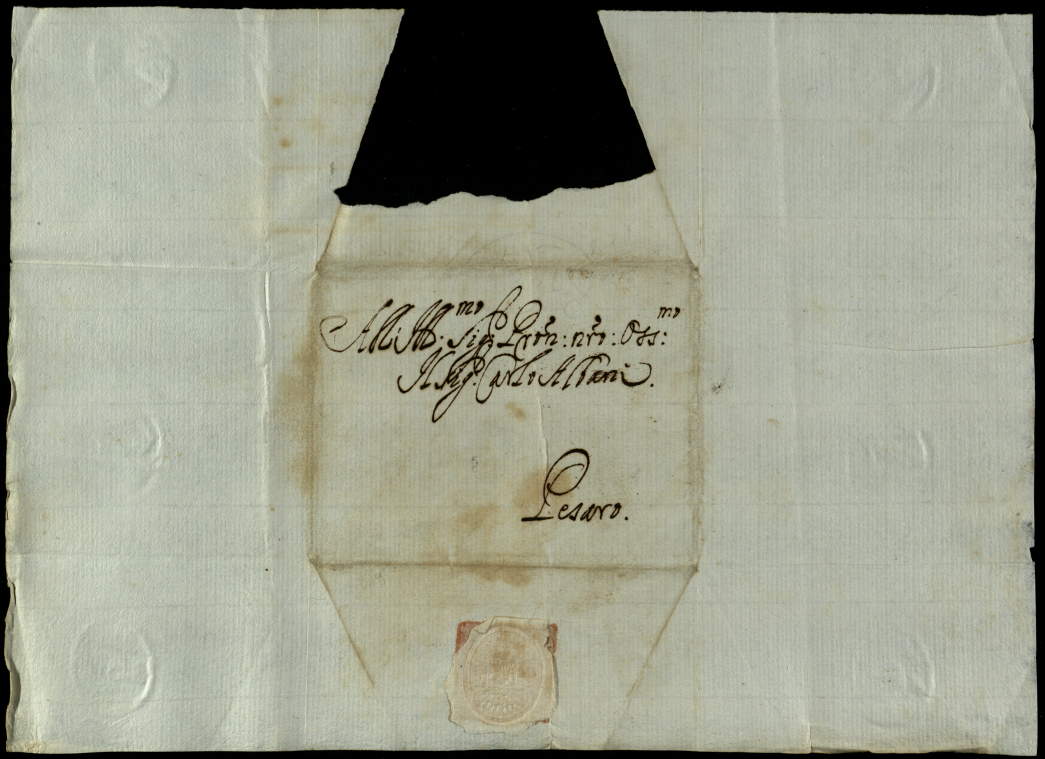 All: Ill:mo Sig: Pron: nro: Oss:mo
Il Sig: Carlo Albani.
Pesaro.